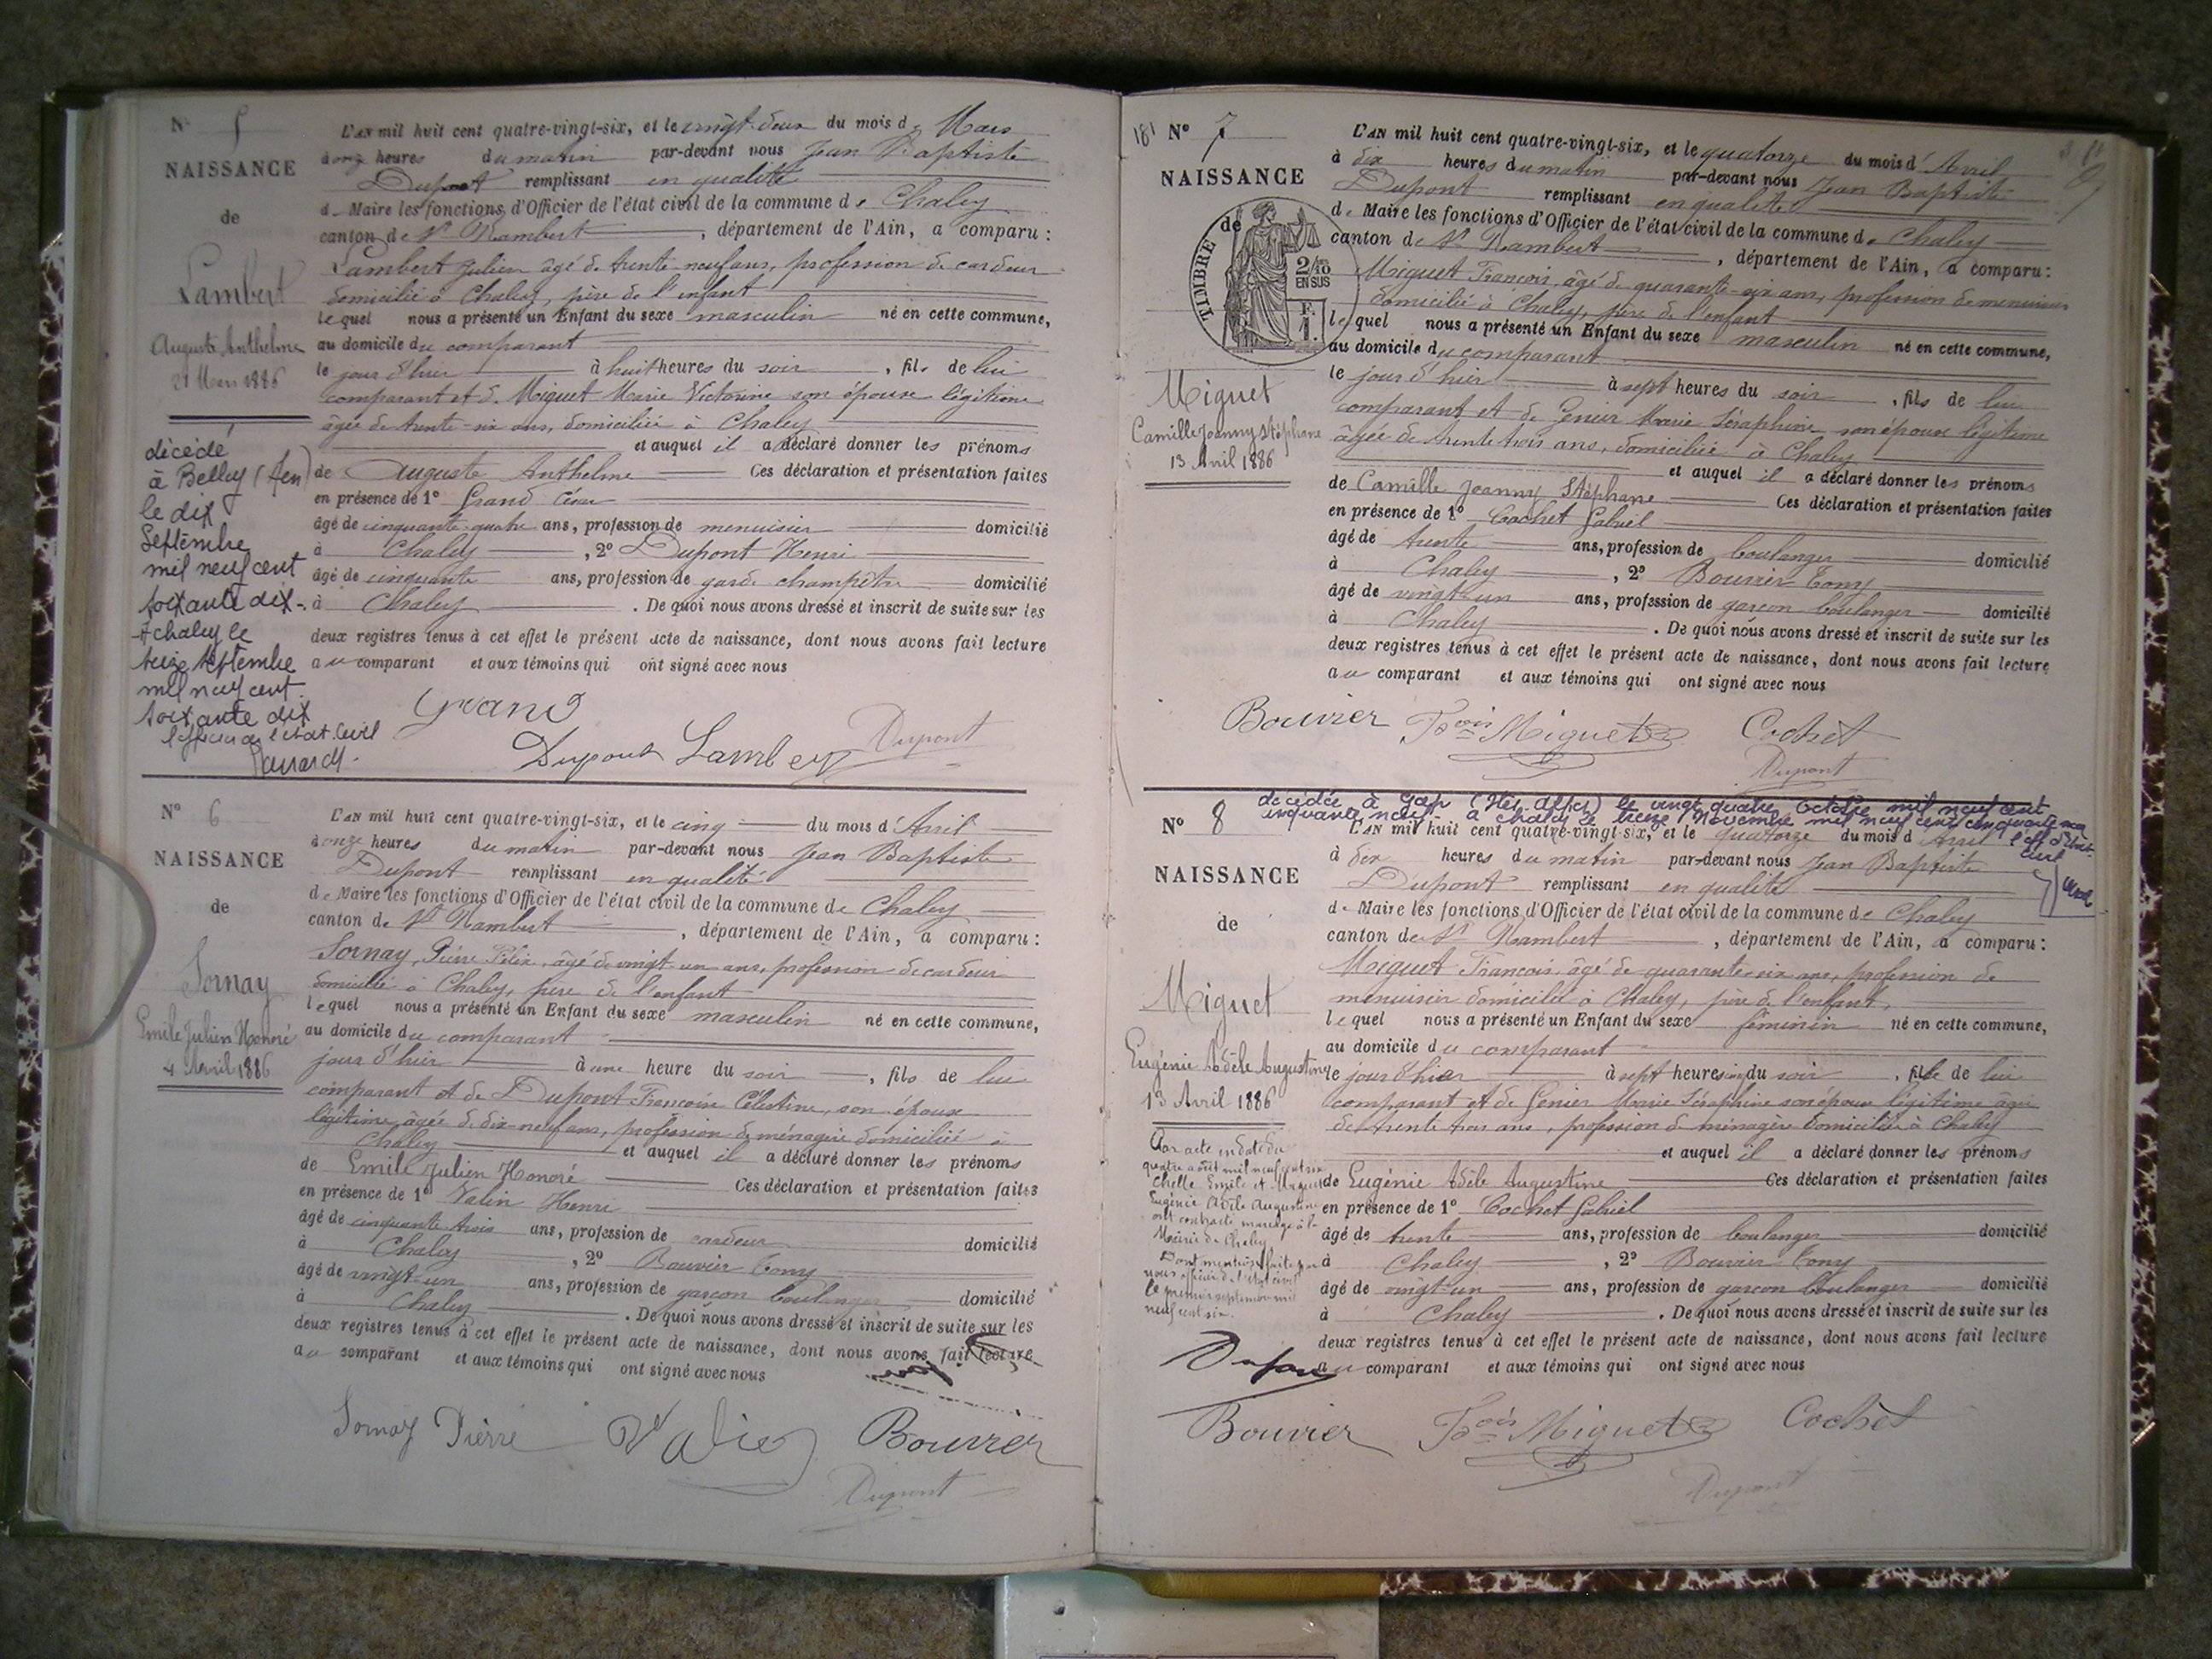 N° 5
NAISSANCE
de
Lambert
Auguste Anthelme
21 Mars 1886
décédé
à Belley (Ain)
le dix
Septembre
mil neuf cent
soixante dix.
A chaley le
seize septembre
mil neuf cent
soixante dix
l'officier de l'état civil
L'AN mil huit cent quatre-vingt-six, et le vingt-deux du mois de Mars
à onze heures du matin par-devant nous Jean Baptiste
Dupont remplissant en qualité
de Maire les fonctions d'Officier de l'état civil de la commune de Chaley
canton de St Rambert, département de l'Ain, a comparu :
Lambert Julien âgé de trente-neuf ans, profession de cardeur
domicilié à Chaley, père de l'enfant
lequel nous a présenté un Enfant du sexe masculin né en cette commune,
au domicile du comparant
le jour d'hier à huit heures du soir, fils de lui
comparant et de Miguet Marie Victorine son épouse légitime
âgée de trente-six ans, domiciliée à Chaley
et auquel il a déclaré donner les prénoms
de Auguste Anthelme Ces déclaration et présentation faites
en présence de 1° Grand César
âgé de cinquante-quatre ans, profession de menuisier domicilié
à Chaley, 2° Dupont Henri
âgé de cinquante ans, profession de garde champêtre domicilié
à Chaley. De quoi nous avons dressé et inscrit de suite sur les
deux registres tenus à cet effet le présent acte de naissance, dont nous avons fait lecture
au comparant et aux témoins qui ont signé avec nous
Grand
Dupont Lambert Dupont
N° 6
NAISSANCE
de
Sornay
Emile Julien Honoré
4 Avril 1886
L'AN mil huit cent quatre-vingt-six, et le cinq du mois d'Avril
à onze heures du matin par-devant nous Jean Baptiste
Dupont remplissant en qualité
de Maire les fonctions d'Officier de l'état civil de la commune de Chaley
canton de St Rambert, département de l'Ain, a comparu :
Sornay, Pierre Félix, âgé de vingt-un ans, profession de cardeur
domicilié à Chaley, père de l'enfant
lequel nous a présenté un Enfant du sexe masculin né en cette commune,
au domicile du comparant
jour d'hier à une heure du soir, fils de lui
comparant et de Dupont Françoise Célestine, son épouse
légitime, âgée de dix-neuf ans, profession de ménagère domiciliée à
Chaley et auquel il a déclaré donner les prénoms
de Emile Julien Honoré Ces déclaration et présentation faites
en présence de 1° Valin Henri
âgé de cinquante trois ans, profession de cardeur domicilié
à Chaley, 2° Bouvier Tony
âgé de vingt-un ans, profession de garçon boulanger domicilié
à Chaley. De quoi nous avons dressé et inscrit de suite sur les
deux registres tenus à cet effet le présent acte de naissance, dont nous avons fait lecture
au comparant et aux témoins qui ont signé avec nous
Sornay Pierre Bouvier
Dupont
181 N° 7
NAISSANCE
de
TIMBRE
2/10
EN SUS
F.
1.
Miguet
Camille Joanny Stéphane
13 Avril 1886
L'AN mil huit cent quatre-vingt-six, et le quatorze du mois d'Avril
à dix heures du matin par-devant nous Jean Baptiste
Dupont remplissant en qualité
de Maire les fonctions d'Officier de l'état civil de la commune de Chaley
canton de St Rambert, département de l'Ain, a comparu :
Miguet François, âgé de quarante-six ans, profession de menuisier
domicilié à Chaley, père de l'enfant
lequel nous a présenté un Enfant du sexe masculin né en cette commune,
au domicile du comparant
le jour d'hier à sept heures du soir, fils de lui
comparant et de Genier Marie Séraphine, son épouse légitime
âgée de trente trois ans, domiciliée à Chaley
et auquel il a déclaré donner les prénoms
de Camille Joanny Stéphane Ces déclaration et présentation faites
en présence de 1° Cochet Gabriel
âgé de trente ans, profession de boulanger domicilié
à Chaley, 2° Bouvier Tony
âgé de vingt-un ans, profession de garçon boulanger domicilié
à Chaley. De quoi nous avons dressé et inscrit de suite sur les
deux registres tenus à cet effet le présent acte de naissance, dont nous avons fait lecture
au comparant et aux témoins qui ont signé avec nous
Bouvier Fois Miguet Cochet
Dupont
décédée à Gap (Htes Alpes) le vingt quatre Octobre mil neuf cent
cinquante neuf. à chaley le treize Novembre mil neuf cent cinquante neuf
l'off. d'Etat
civil
N° 8
NAISSANCE
de
Miguet
Eugénie Adèle Augustine
13 Avril 1886
Par acte en date du
quatre août mil neuf cent six
Chelle Emile et Miguet
Eugénie Adèle Augustine
ont contracté mariage à la
Mairie de Chaley
Dont mention faite par
nous officier de l'état civil
le premier septembre mil
neuf cent six.
L'AN mil huit cent quatre-vingt-six, et le quatorze du mois d'Avril
à dix heures du matin par-devant nous Jean Baptiste
Dupont remplissant en qualité
de Maire les fonctions d'Officier de l'état civil de la commune de Chaley
canton de St Rambert, département de l'Ain, a comparu :
Miguet François, âgé de quarante-six ans, profession de
menuisier domicilié à Chaley, père de l'enfant,
lequel nous a présenté un Enfant du sexe féminin né en cette commune,
au domicile du comparant
le jour d'hier à sept heures du soir, fille de lui
comparant et de Genier Marie Séraphine son épouse légitime âgée
de trente trois ans, profession de ménagère domiciliée à Chaley
et auquel il a déclaré donner les prénoms
de Eugénie Adèle Augustine Ces déclaration et présentation faites
en présence de 1° Cochet Gabriel
âgé de trente ans, profession de boulanger domicilié
à Chaley, 2° Bouvier Tony
âgé de vingt-un ans, profession de garçon boulanger domicilié
à Chaley. De quoi nous avons dressé et inscrit de suite sur les
deux registres tenus à cet effet le présent acte de naissance, dont nous avons fait lecture
au comparant et aux témoins qui ont signé avec nous
Bouvier Fois Miguet Cochet
Dupont